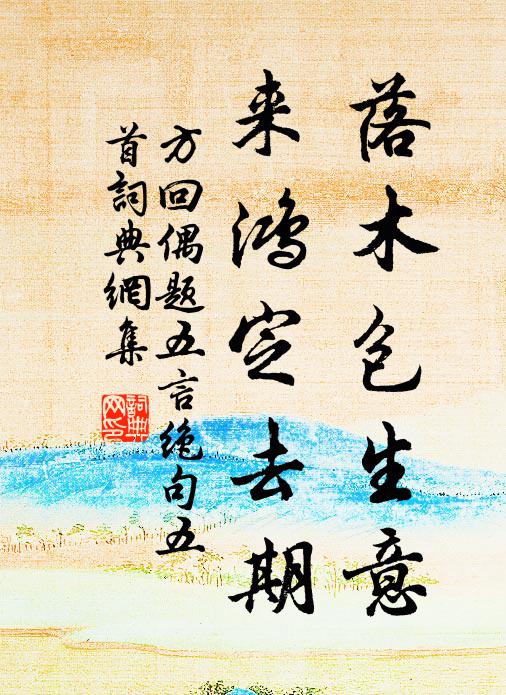 落木包生意
来鸿定去期
方回偶题五言绝句五
首詞典網集
詞典网印